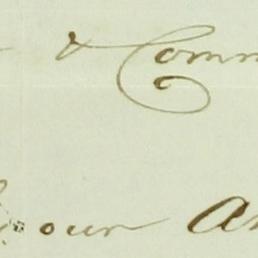 & Comm
our An